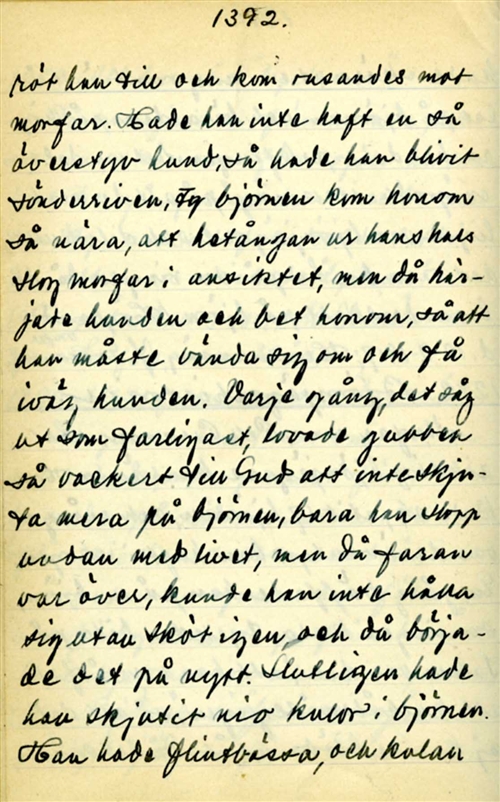 1392.
röt han till och kom rusandes mot
morfar. Hade han inte haft en så
överstyv hund, så hade han blivit
sönderriven, ty björnen kom honom
så nära, att hetångan ur hans hals
slog morfar i ansiktet, men då här-
jade hunden och bet honom, så att
han måste vända sig om och få
iväg hunden. Varje gång, det såg
ut som farligast, lovade gubben
så vackert till Gud att inte skju-
ta mera på björnen, bara han slapp
undan med livet, men då faran
var över, kunde han inte hålla
sig utan sköt igen, och då börja-
de det på nytt. Slutligen hade
han skjutit nio kulor i björnen.
Han hade flintbössa, och kulan